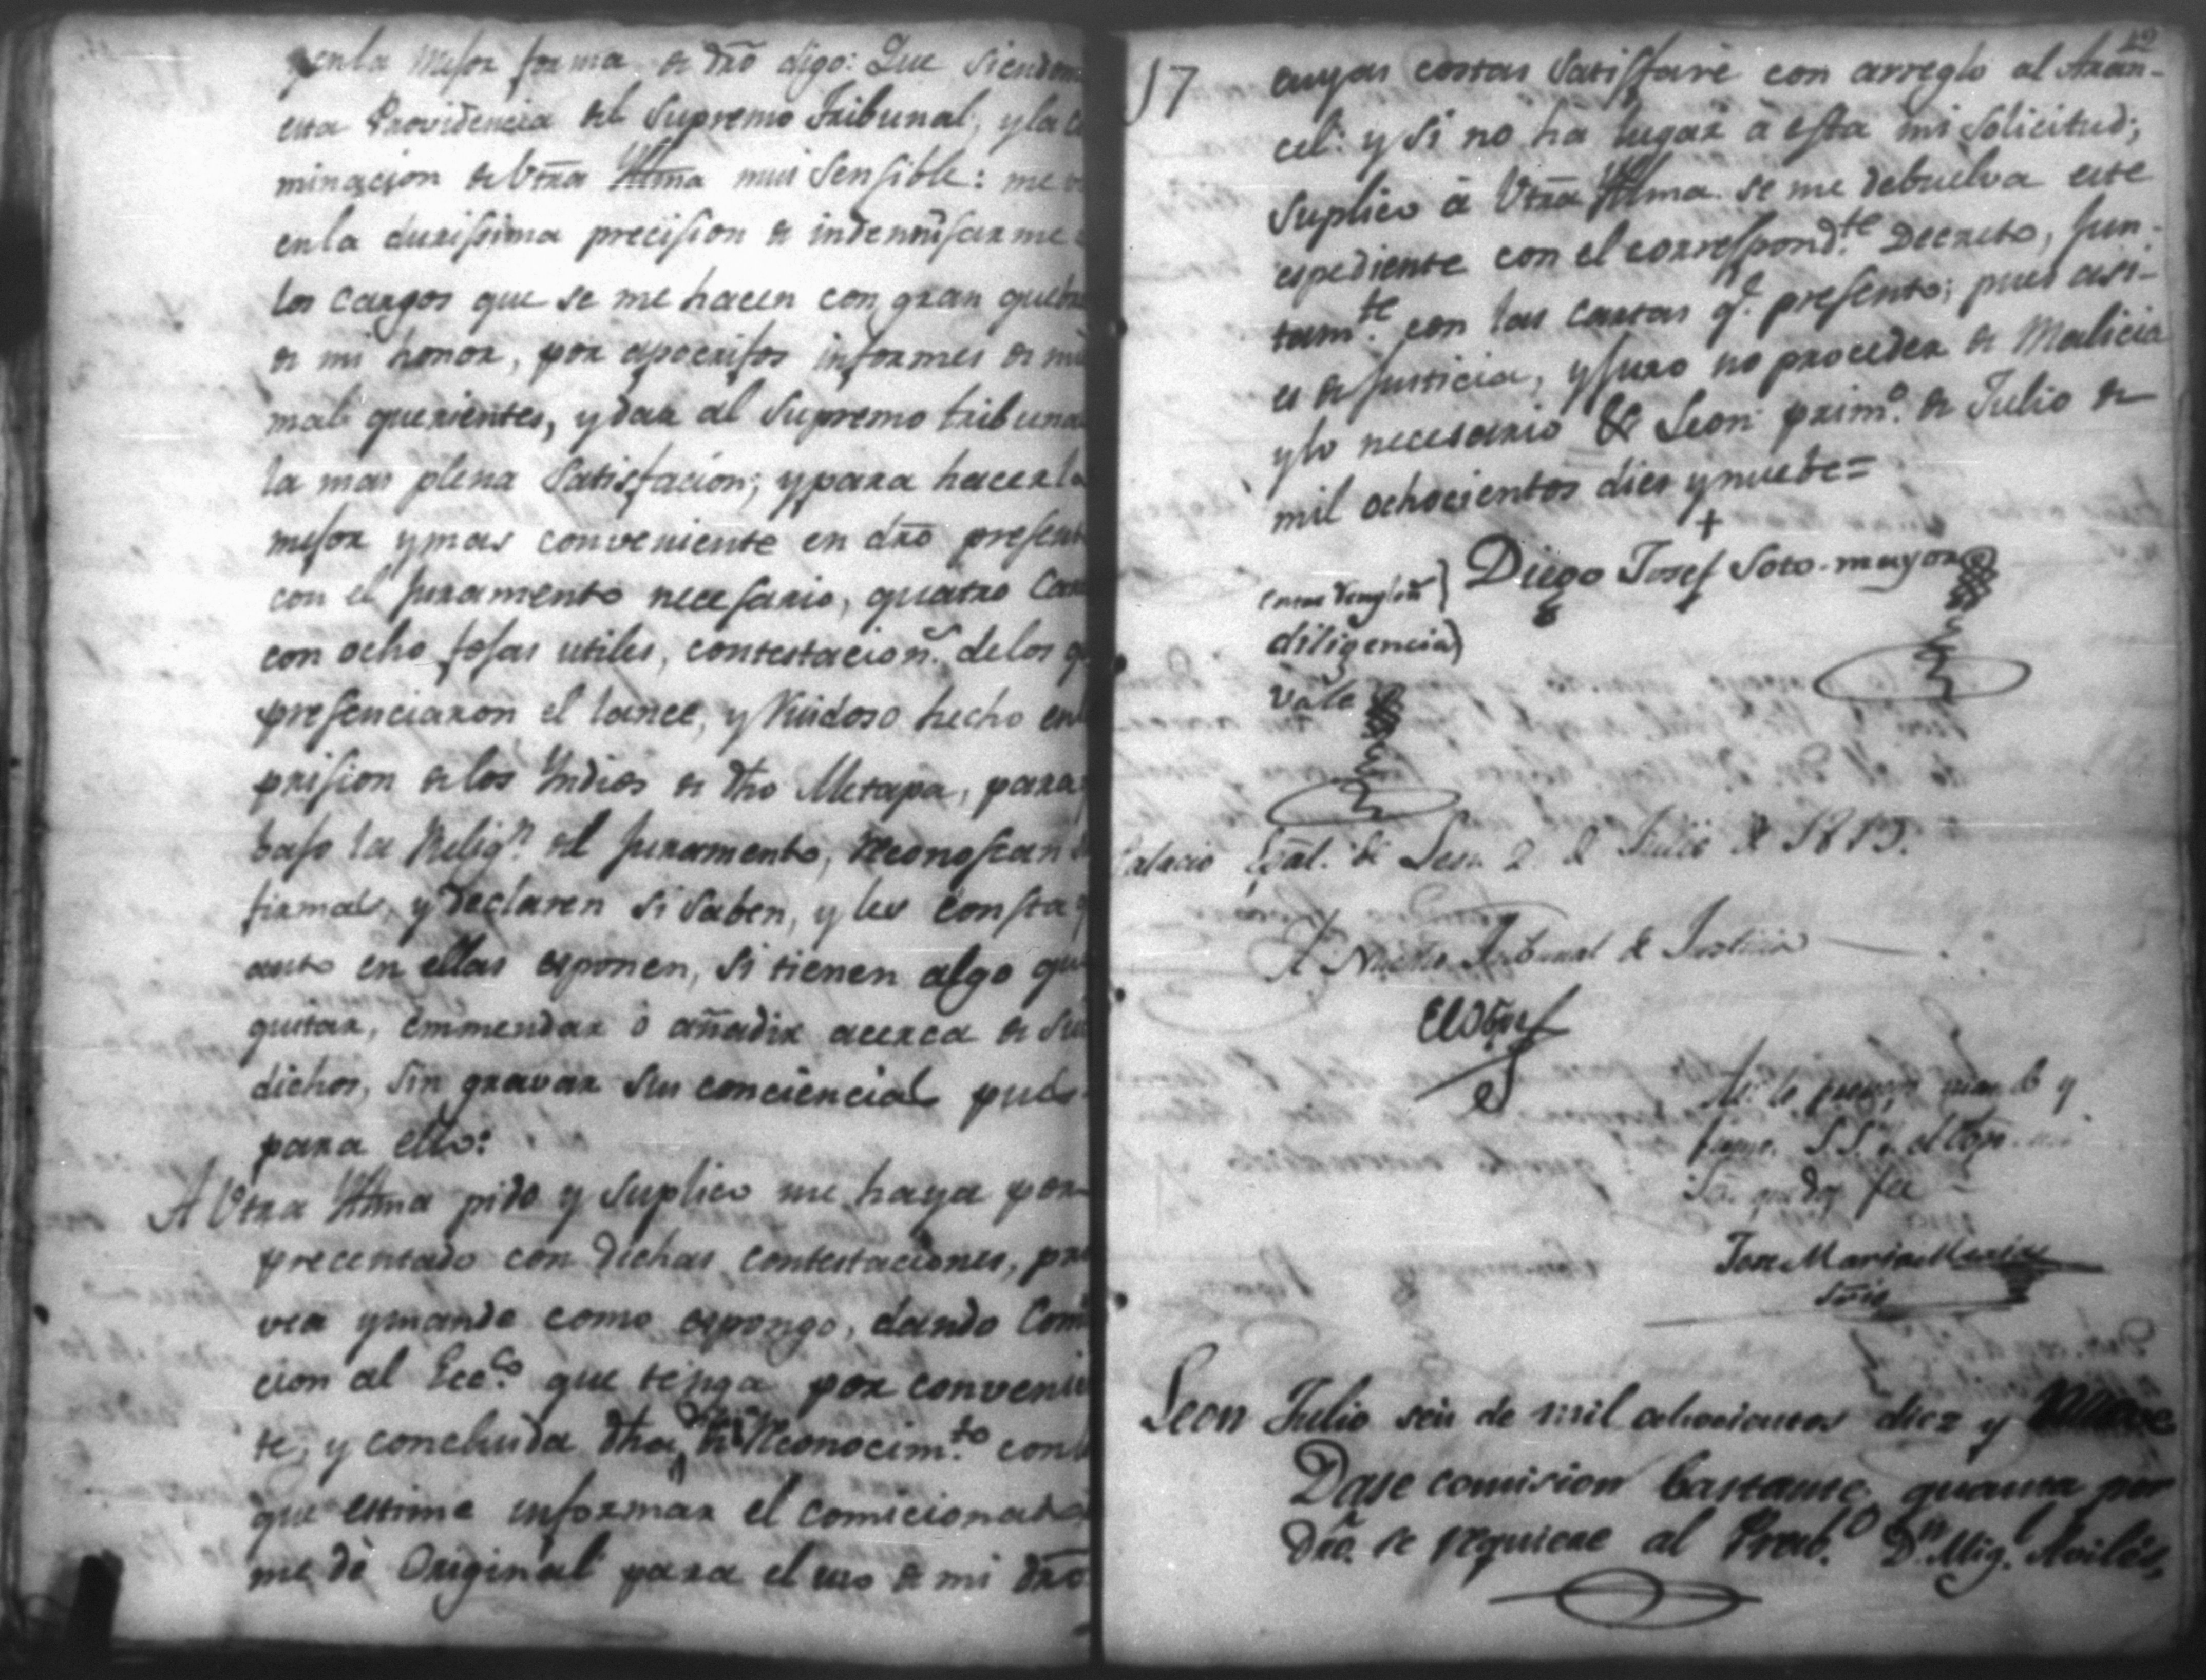 y en la mejor forma de dro digo: Que siendo
esta Providencia del Supremo Tribunal, y la
minacion de Vtra Yllma mui sensible: me
en la durissima precission de indemnisarme
los cargos que se me hacen con gran
de mi honor, por apocrifos informes de mis
mal querientes, y dar al Supremo tribunal
la mas plena Satisfacion; y para hacerlo
mejor y mas conveniente en dro
con el Juramento necesario, quatro
con ocho fojas utiles, contestacion.s de los
presenciaron el lance, y Ruidoso hecho en
prision de los Yndios de dho Metapa, para
bajo la Relig.n del Juramento, reconoscan
firmas, y declaren si saben, y les consta
en ellas esponen, si tienen algo que
quitar, emmendar ò añadir acerca de sus
dichos, sin gravar sus conciencias pues
para ello:
A Vtra Yllma pido y suplico me haya por
precentado con dichas contestaciones,
vea y mande como espongo, dando
cion al Ecc.co que tenga por
te, y concluida dha de Reconocim.to con
que estime informar el comicionado
me dè Original para el uso de mi dro
17
cuyas costas satisfarè con arreglo al Aran-
cel: y si no ha lugar à esta mi solicitud;
Suplico à Vtra Yllma. se me debuelva este
espediente con el correspond.te Decreto, jun-
tam.te con las cartas q.e presento; pues asi-
es de Justicia, y juro no proceder de Malicia
y lo necesario &c Leon prim.o de Julio de
mil ochocientos dies y nuebe=
+
Diego Josef Soto-mayor
diligencia
Vale
Palacio Epāl. de Leon 2 de Julio de 1819.
A Nuestro Tribunal de Justicia
El Obpo
mando y
firmo S.S.Y. el Obpo. mi
Sor. que doy fee
Jose Maria
Srio
Leon Julio seis de mil ochocientos diez y nueve
Dase comision bastante quanta por
dro. se requiere al Presb.o D.n Mig.l Avilés,